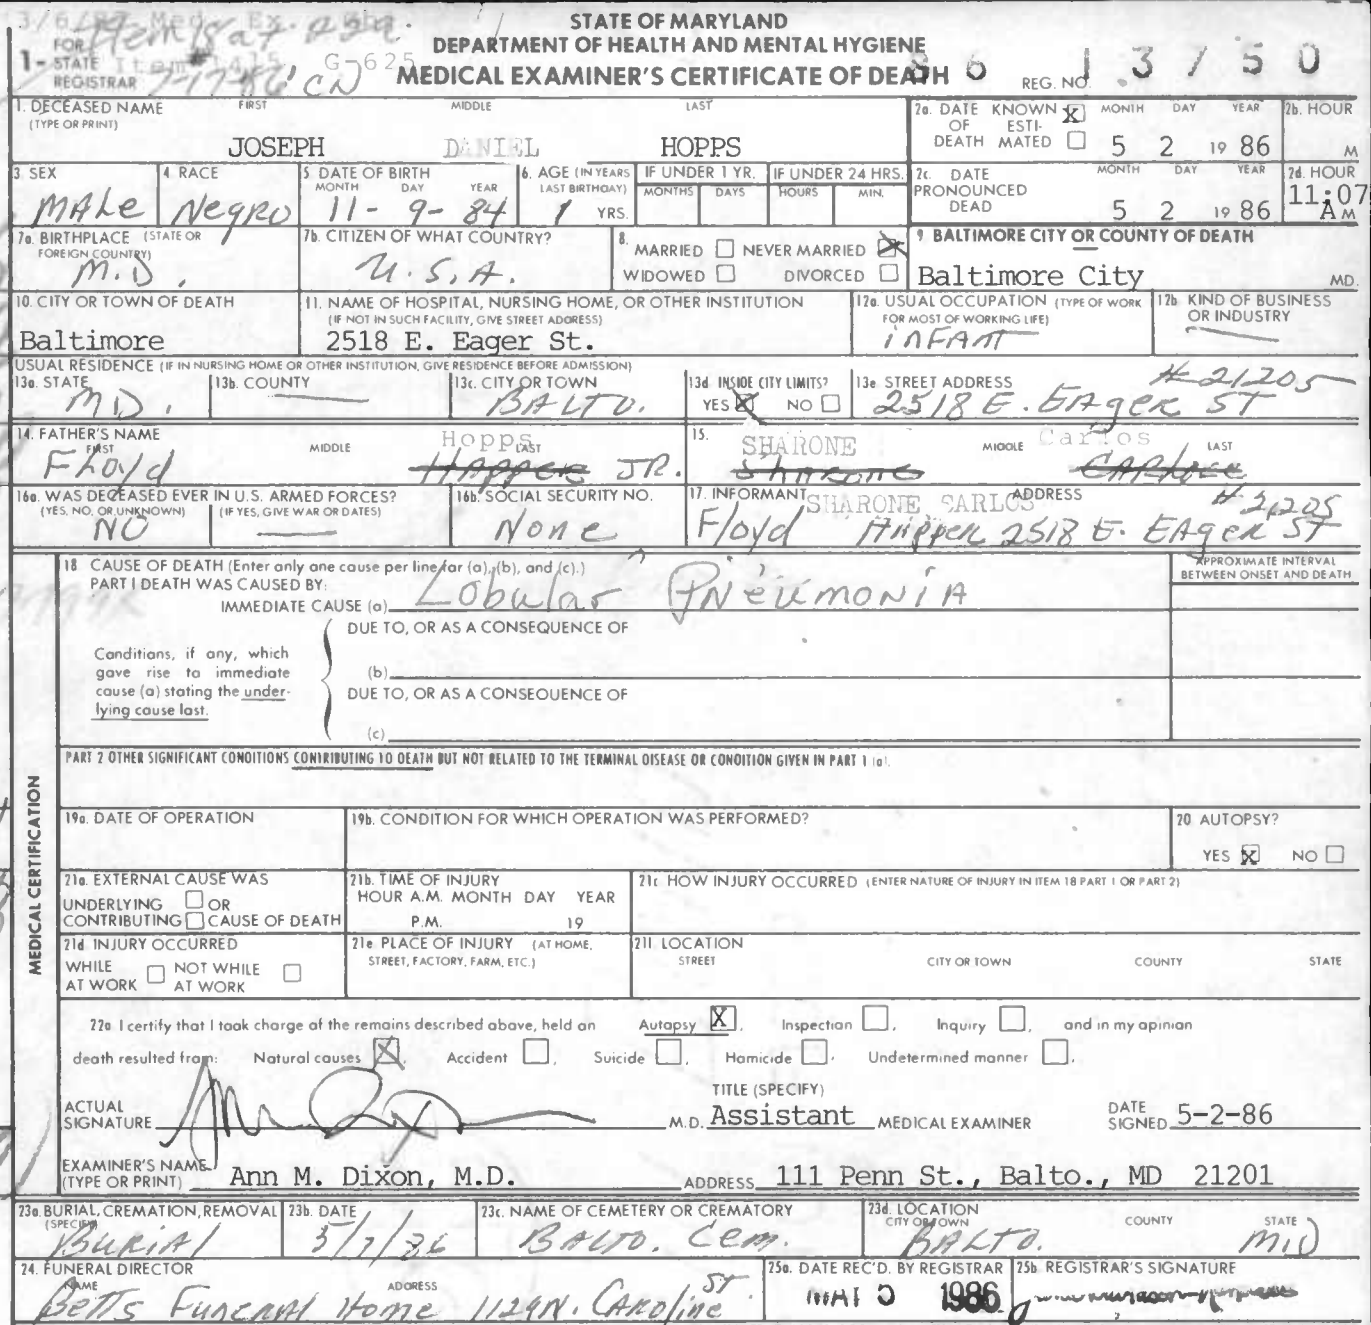 3/6/87 Med. Ex. abba.
FOR Item 18 a+ 22a
1 - STATE Item# 14,15 G-625
REGISTRAR 7-17-86 CN
STATE OF MARYLAND
DEPARTMENT OF HEALTH AND MENTAL HYGIENE
MEDICAL EXAMINER'S CERTIFICATE OF DEATH
86 REG. NO. 13750
1. DECEASED NAME FIRST MIDDLE LAST
(TYPE OR PRINT)
JOSEPH DANIEL HOPPS
2a. DATE KNOWN X MONTH DAY YEAR 2b. HOUR
OF ESTI-
DEATH MATED 5 2 19 86 M
3 SEX 4. RACE 5. DATE OF BIRTH 6. AGE (IN YEARS IF UNDER 1 YR. IF UNDER 24 HRS.
MONTH DAY YEAR LAST BIRTHDAY) MONTHS DAYS HOURS MIN.
MALE NEGRO 11- 9- 84 1 YRS.
2c. DATE MONTH DAY YEAR 2d. HOUR
PRONOUNCED
DEAD 5 2 19 86 11:07 A M
7a. BIRTHPLACE (STATE OR
FOREIGN COUNTRY)
M.D.
7b. CITIZEN OF WHAT COUNTRY?
U.S.A.
8. MARRIED NEVER MARRIED X
WIDOWED DIVORCED
9. BALTIMORE CITY OR COUNTY OF DEATH
Baltimore City MD.
10. CITY OR TOWN OF DEATH
Baltimore
11. NAME OF HOSPITAL, NURSING HOME, OR OTHER INSTITUTION
(IF NOT IN SUCH FACILITY, GIVE STREET ADDRESS)
2518 E. Eager St.
12a. USUAL OCCUPATION (TYPE OF WORK
FOR MOST OF WORKING LIFE)
INFANT
12b. KIND OF BUSINESS
OR INDUSTRY
USUAL RESIDENCE (IF IN NURSING HOME OR OTHER INSTITUTION, GIVE RESIDENCE BEFORE ADMISSION)
13a. STATE 13b. COUNTY 13c. CITY OR TOWN 13d INSIDE CITY LIMITS? 13e STREET ADDRESS # 21205
MD. BALTO. YES X NO 2518 E. EAgER ST
14. FATHER'S NAME
FIRST MIDDLE LAST
Hopps
Floyd Happer JR.
15. MIDDLE LAST
SHARONE Carlos
Sharone
16a. WAS DECEASED EVER IN U.S. ARMED FORCES?
(YES, NO, OR UNKNOWN) (IF YES, GIVE WAR OR DATES)
NO
16b. SOCIAL SECURITY NO.
None
17. INFORMANT ADDRESS
SHARONE CARLOS # 21205
Floyd Happer 2518 E. EAger ST
18 CAUSE OF DEATH (Enter only one cause per line for (a), (b), and (c).)
PART I DEATH WAS CAUSED BY:
IMMEDIATE CAUSE (a) Lobular PNEUMONIA
APPROXIMATE INTERVAL
BETWEEN ONSET AND DEATH
DUE TO, OR AS A CONSEQUENCE OF
Conditions, if any, which
gave rise to immediate
cause (a) stating the under-
lying cause last.
(b)
DUE TO, OR AS A CONSEQUENCE OF
(c)
PART 2 OTHER SIGNIFICANT CONDITIONS CONTRIBUTING TO DEATH BUT NOT RELATED TO THE TERMINAL DISEASE OR CONDITION GIVEN IN PART 1 (a).
MEDICAL CERTIFICATION
19a. DATE OF OPERATION
19b. CONDITION FOR WHICH OPERATION WAS PERFORMED?
20 AUTOPSY?
YES X NO
21a. EXTERNAL CAUSE WAS
UNDERLYING OR
CONTRIBUTING CAUSE OF DEATH
21b. TIME OF INJURY
HOUR A.M. MONTH DAY YEAR
P.M. 19
21c HOW INJURY OCCURRED (ENTER NATURE OF INJURY IN ITEM 18 PART 1 OR PART 2)
21d INJURY OCCURRED
WHILE NOT WHILE
AT WORK AT WORK
21e PLACE OF INJURY (AT HOME,
STREET, FACTORY, FARM, ETC.)
21f. LOCATION
STREET CITY OR TOWN COUNTY STATE
22a I certify that I took charge of the remains described above, held an Autopsy X, Inspection , Inquiry , and in my opinion
death resulted from: Natural causes X, Accident , Suicide , Homicide , Undetermined manner .
ACTUAL
SIGNATURE M.D.
TITLE (SPECIFY)
Assistant MEDICAL EXAMINER
DATE
SIGNED 5-2-86
EXAMINER'S NAME
(TYPE OR PRINT) Ann M. Dixon, M.D.
ADDRESS 111 Penn St., Balto., MD 21201
23a. BURIAL, CREMATION, REMOVAL 23b. DATE 23c. NAME OF CEMETERY OR CREMATORY 23d. LOCATION
(SPECIFY) CITY OR TOWN COUNTY STATE
BURIAL 5/7/86 BALTO. Cem. BALTO. MD
24. FUNERAL DIRECTOR
NAME ADDRESS
Betts Funeral Home 1129 N. CAROline ST
25a. DATE REC'D. BY REGISTRAR
MAY 5 1986
25b. REGISTRAR'S SIGNATURE